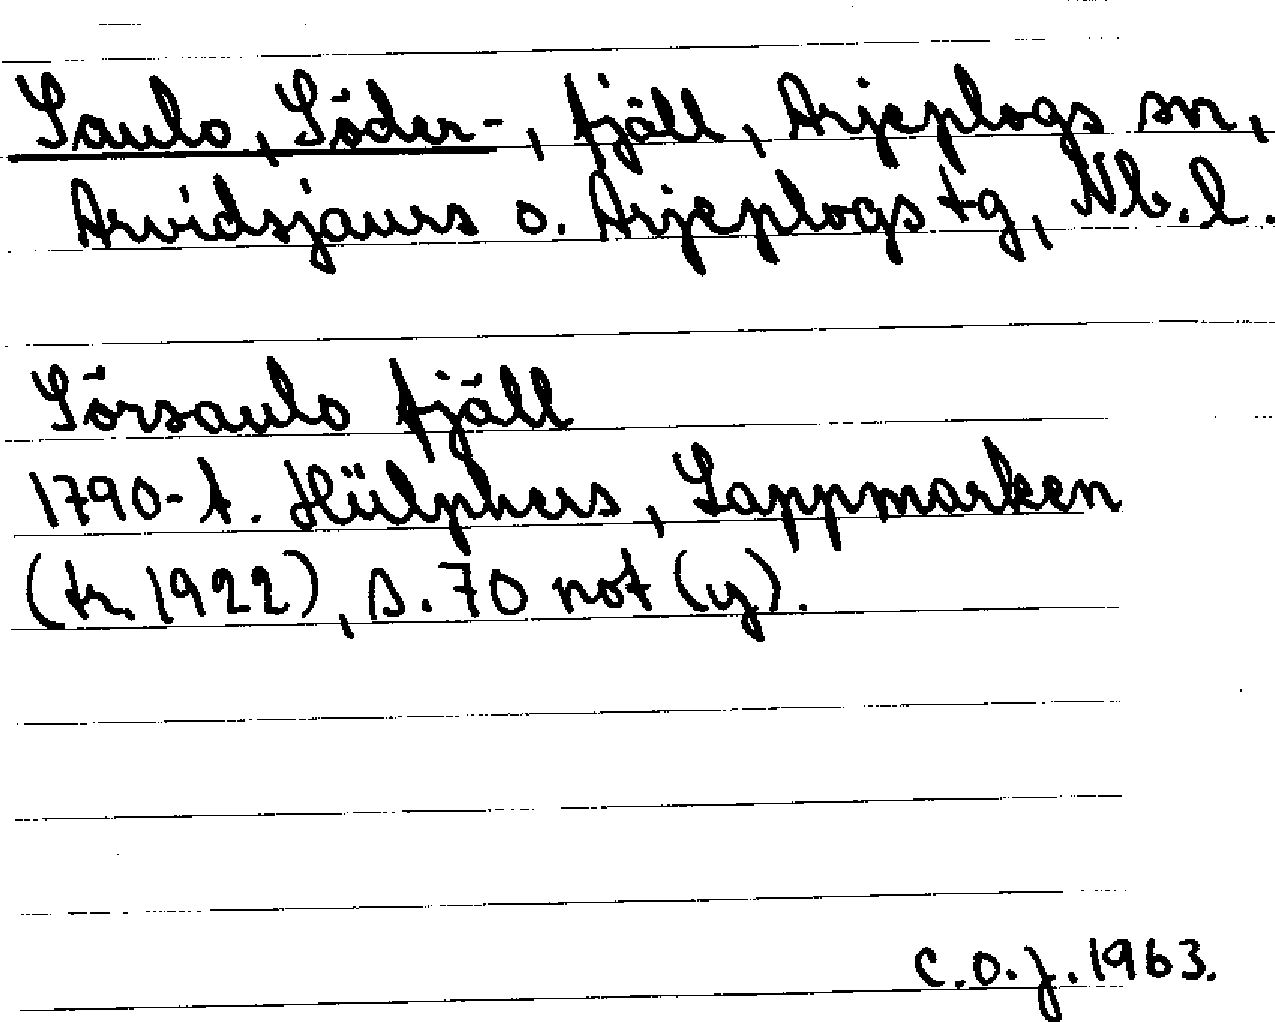 Saulo, Söder-, fjäll, Arjeplogs sn,
Arvidsjaurs o. Arjeplogs tg, Nb. l.
Sörsaulo fjäll
1790-t. Hülphers, Lappmarken
(tr. 1922), s. 70 not (y).
C.O.J. 1963.